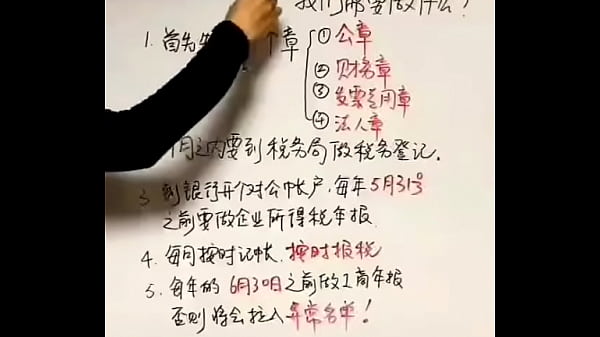 我们都要做什么?
1. 首先 个章 ① 公章
② 财务章
③ 发票专用章
④ 法人章
月之内要到税务局做税务登记.
3. 到银行开个对公帐户,每年5月31号
之前要做企业所得税年报.
4. 每月按时记帐.按时报税
5. 每年的6月30日之前做工商年报
否则将会拉入异常名单!